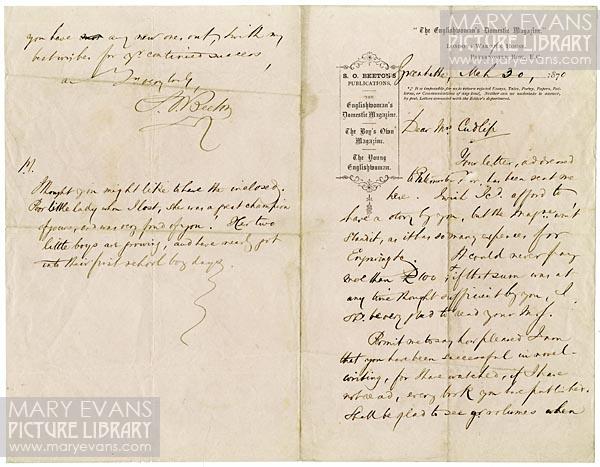 MARY EVANS
PICTURE LIBRARY
www.maryevans.com
"The Englishwoman's Domestic Magazine,"
London: Warwick House,
Paternoster Row, E.C.
Greenhithe, Mch 30, 1870
S. O. BEETON'S
PUBLICATIONS.
THE
Englishwoman's
Domestic Magazine.
The Boy's Own
Magazine.
The Young
Englishwoman.
It is impossible for us to return rejected Essays, Tales, Poetry, Papers, Patterns, or Communications of any kind. Neither can we undertake to answer, by post, Letters connected with the Editor's department.
Dear Mrs Cudlip
Your letter, addressed
to Paternoster Row, has been sent me
here. I wish I cd. afford to
have a story by you, but the Magne. won't
stand it, as it has so many expenses for
Engraving &c. It could never pay
more than £100; if that sum was at
any time thought sufficient by you, I
shd. be very glad to read your MS.
Permit me to say how pleased I am
that you have been successful in novel-
writing, for I have watched, if I have
not read, every book you have published.
Shall be glad to see yr volumes when
you have any new one out, & with my
best wishes for yr continued success,
I
S. O. Beeton
I thought you might like to have the inclosed.
Poor little lady whom I lost, she was a great champion
of yours, and was very fond of you. Her two
little boys are growing, and have nearly got
into their first school boy days.
MARY EVANS
PICTURE LIBRARY
www.maryevans.com